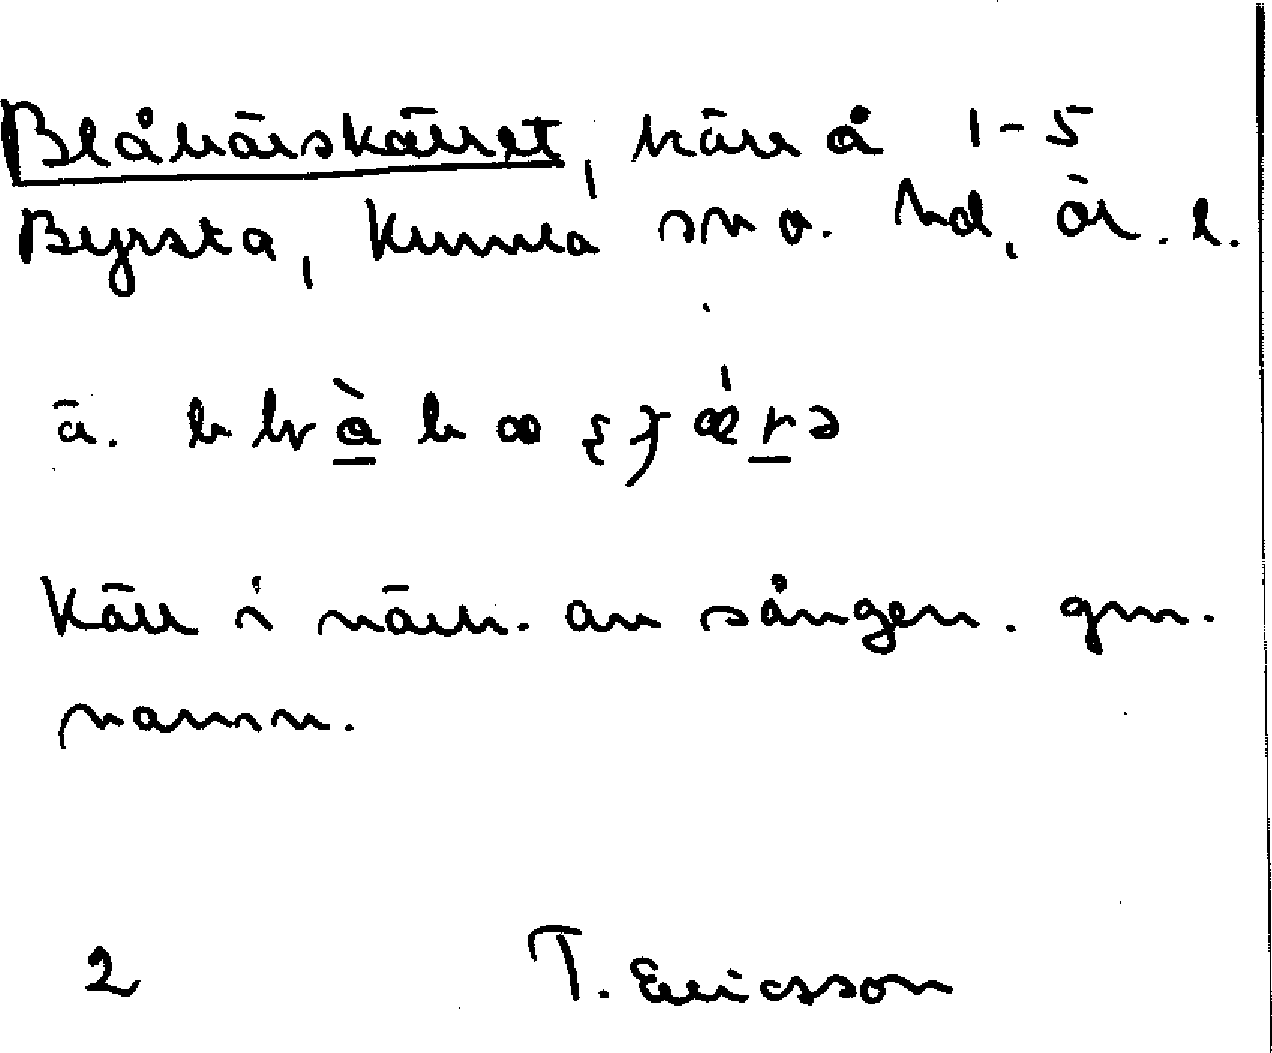 Blåbärskärret, kärr å 1-5
Byrsta, Kumla sn o. hd, Ör. l.
Kärr i närh. av sången. gm.
namn.
2 T. Ericsson